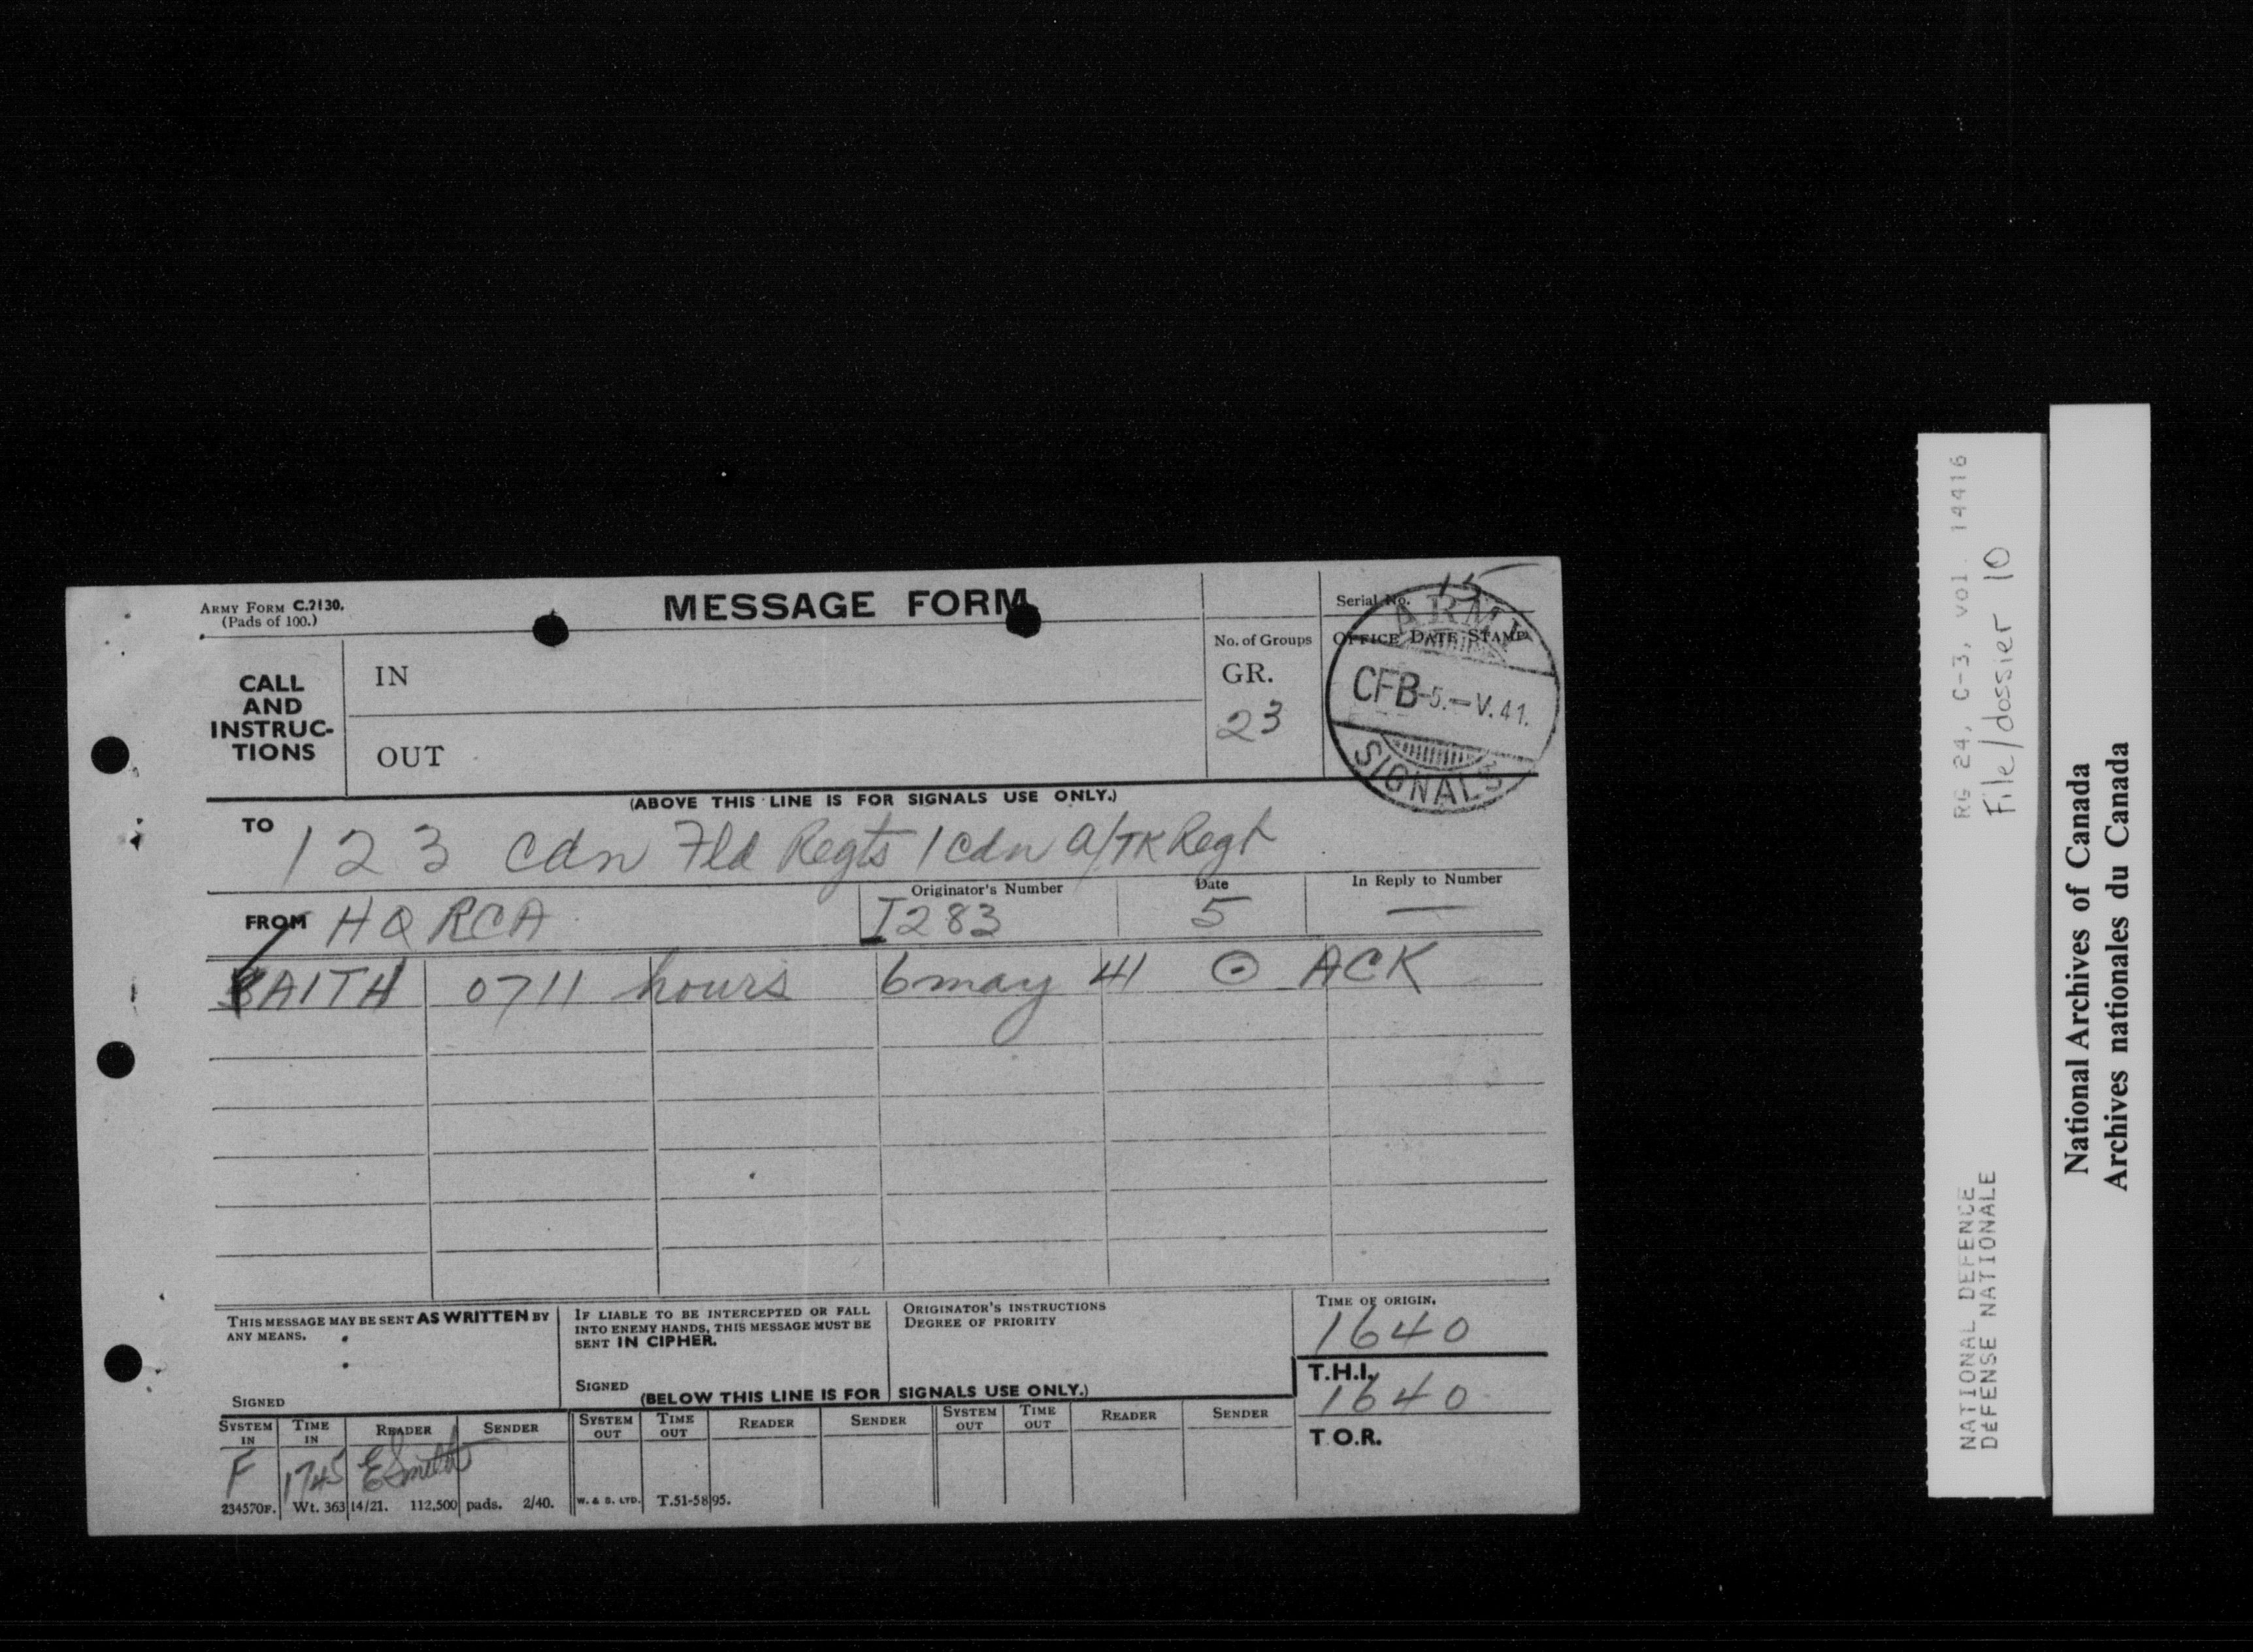 ARMY FORM C.2130.
(Pads of 100.)
MESSAGE FORM
Serial No. 15
No. of Groups
OFFICE DATE STAMP
CALL
AND
INSTRUC-
TIONS
IN
OUT
GR.
23
ARMY
CFB-5.-V.41.
SIGNALS
(ABOVE THIS LINE IS FOR SIGNALS USE ONLY.)
TO
1 2 3 Cdn Fld Regts 1 Cdn A/TK Regt
FROM HQ RCA
Originator's Number
I283
Date
5
In Reply to Number
—
FAITH 0711 hours 6 may 41 ⊙ ACK
THIS MESSAGE MAY BE SENT AS WRITTEN BY
ANY MEANS.
SIGNED
IF LIABLE TO BE INTERCEPTED OR FALL
INTO ENEMY HANDS, THIS MESSAGE MUST BE
SENT IN CIPHER.
SIGNED
ORIGINATOR'S INSTRUCTIONS
DEGREE OF PRIORITY
TIME OF ORIGIN.
1640
T.H.I.
1640
T.O.R.
(BELOW THIS LINE IS FOR SIGNALS USE ONLY.)
SYSTEM IN TIME IN READER SENDER SYSTEM OUT TIME OUT READER SENDER SYSTEM OUT TIME OUT READER SENDER
F 1745 E Smith
234570F. Wt. 36314/21. 112,500 pads. 2/40. W. & S. LTD. T.51-5895.
RG 24, C-3, vol. 14416
File/dossier 10
NATIONAL DEFENCE
DÉFENSE NATIONALE
National Archives of Canada
Archives nationales du Canada